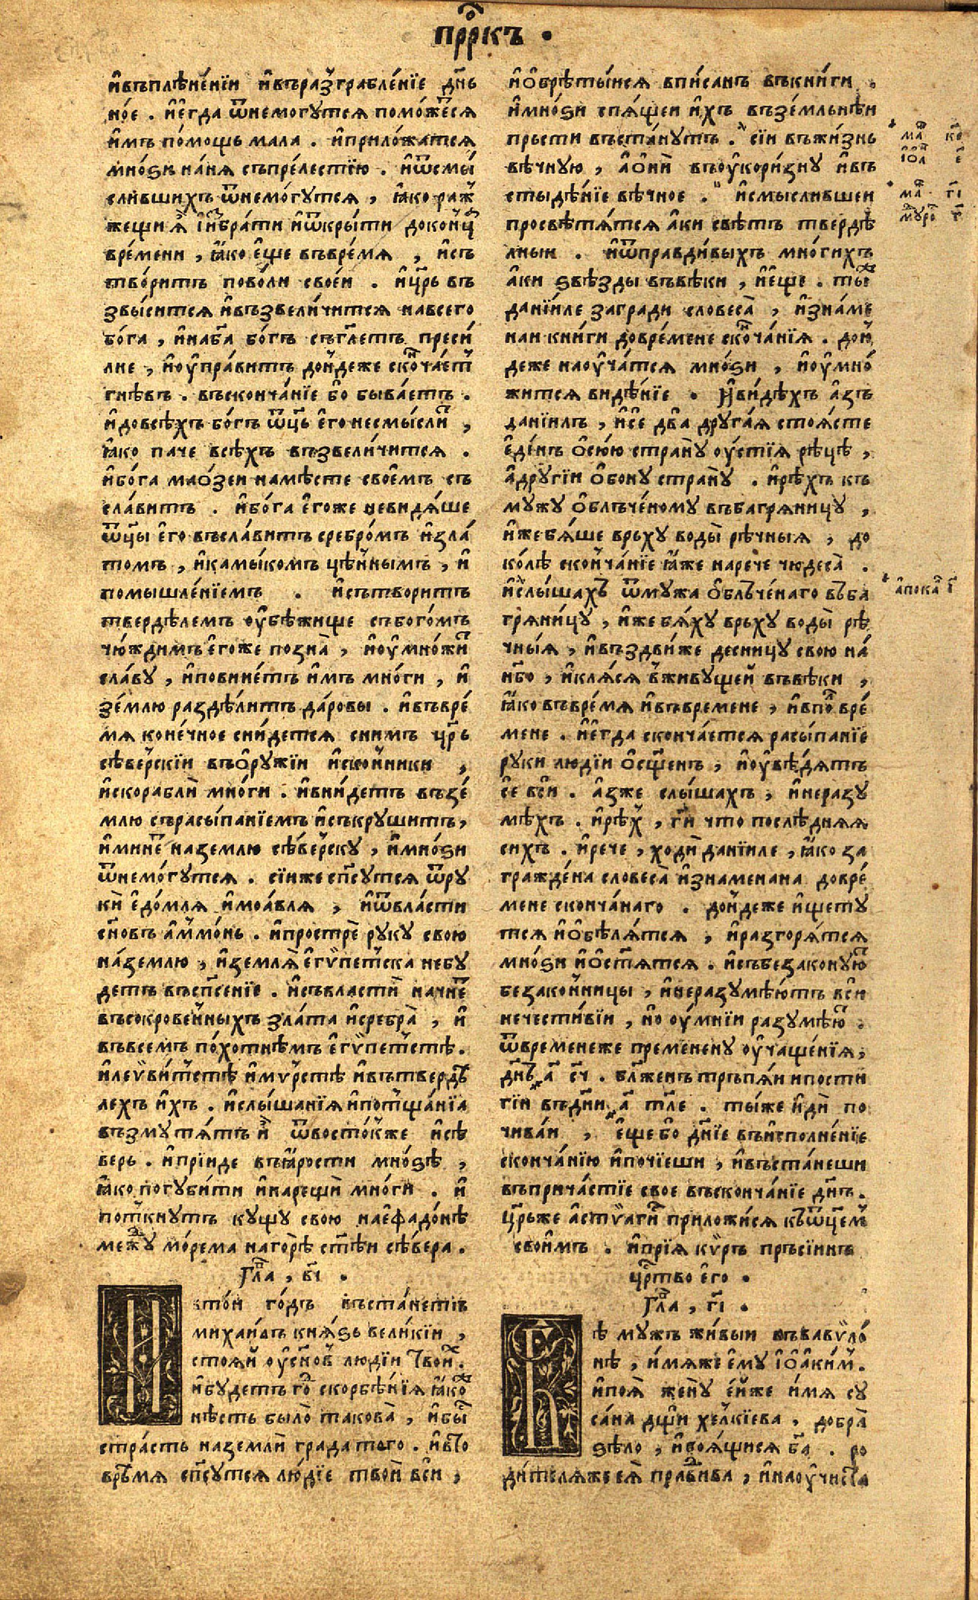 прⷪ҇ркъ •
и҆въплѣне́нїи и҆въразⸯграбле́нїе дн҃ь
ное . и҆е҆гда ѿнемогутся помо́жеⷭся
и҆мъ по́мощь мала . и҆приложатся
мно́ѕи на́ня съпре́лестїю . и҆ѿсмы́
сливших̾ ѿнемо́гутся , ꙗ҆ко раⷤ
жещи ѧ҆̀ и҆и҆збрати и҆ѿкры́ти доконⷰ
вре́мени , ꙗ҆ко е҆ще въвре́мя , и҆съ
тво́ритъ пово́ли свое́и . и҆цр҃ь въ
звы́сится и҆въ̾звели́чится навсего
бо́га , и҆наб҃а бо́гъ съгл҃етъ преси́
лне , и҆оу҆пра́витъ до́ндеже ско҃чаеⷮ
гнѣ́въ . въскончание бо бываетъ .
и҆довсѣхъ бо́гъ ѿц҃ь е҆го несмы́слиⷮ ,
ꙗ҆ко паче всѣ́хъ възвели́чится .
и҆бо́га мао́зеи намѣсте свое́мъ съ
сла́витъ . и҆бо́га е҆го́же невидя́ше
ѿцы̀ е҆го въсла́витъ сребро́мъ и҆зла́
томъ , и҆ка́мыкомъ цѣ́ннымъ , и҆
помышле́нїемъ . и҆сътворитъ
тверде́лемъ оу҆бѣжище събо́гомъ
чю́ждимъ е҆го́же позна̀ , и҆оу҆мно́жиⷮ
сла́ву , и҆повине́тъ и҆мъ мно́ги , и҆
зе́млю раздѣли́тъ да́ровы . и҆въвре́
мя коне́чное сни́дется сни́мъ цр҃ь
сѣ́верскїи въо҆ру́жїи и҆ско́нники ,
и҆скораблѝ мно́ги . и҆вни́детъ въ̾зе́
млю съ̾расы́панїемъ и҆съкруши́тъ,
и҆мине́ⷮ на́землю сѣ́верску , и҆мно́ѕи
ѿнемо́гутся . сїи́же сп҃сутся ѿру
кѝ е҆до́мля и҆моа́вля , и҆ѿвла́сти
сн҃овъ а҆ммо́нь . и҆прострѐ ру́ку свою
на́землю , и҆земля̀ е҆гѵ́пеⷮска небу́
детъ въсп҃се́нїе . и҆съвла́стїи начнеⷮ
въсокрове́нныхъ зла́та и҆сребра̀ , и҆
въвсемъ по́хотнѣмъ е҆гѵ́петⸯстѣ.
и҆леѵви́тⸯстѣ и҆мѵ́рстѣ и҆въ̾твердⷣ
лехъ и҆хъ . и҆слы́шанїя и҆потщанїа
възму́тятъ и҆̀ ѿвосто́кже и҆сѣ́
веръ . и҆прїиде въ̾ꙗ҆рости мно́ѕѣ ,
ꙗ҆ко погуби́ти и҆нарещи мно́ги . и҆
по́ткнутъ ку́щу свою наефадо́нѣ
межⷣу мо́рема нагорѣ̀ ст҃ѣи сѣ́вера .
Глⷡ҇а , в҃і •
Втои́ го́дъ въста́нетⸯ
михаилъ кня́ѕь великїи ,
стоя́и оу҆сн҃овъ лю́дїи твоиⷯ.
и҆бу́детъ гоⷣ ско́рбѣнїя ꙗ҆коⷤ
нѣ́сть было̀ такова̀ , и҆быⷮ
стра́сть наземлѝ града того . и҆вто
врѣ́мя сп҃сутся лю́дїе твои́ вси ,
и҆о҆брѣты́ися впи́санъ въ̾кни́ги .
и҆мно́ѕи спя́щеи и҆хъ въ̾зе́мльнѣи
прьсти въста́нутъ . сїи въ̾жи́знь
вѣ́чную , а҆о҆нѝ въоу҆кори́зну и҆въ
стыдѣ́нїе вѣ́чное . и҆смысливше́и
просвѣтя́тся а҆ки свѣ́тъ тверде́
лныи . и҆ѿправди́выхъ мно́гихъ
а҆ки ѕвѣ́зды въ̾вѣ́ки , и҆е҆ще . тыⷤ
данїи́ле загради словеса̀ , и҆зна́ме
наи кни́ги довре́мене ско҃ча́нїя . дон
деже наоу҆ча́тся мно́ѕи , и҆оу҆мно́
жится видѣ́нїе . И҆видѣ́хъ а҆зъ
данїилъ , и҆сѐ два̀ друга́я стоя́сте
е҆ди́нъ о҆сю́ю страну̀ оу҆́стїя рѣцѣ̀ ,
а҆другїи о҆бо́ну страну̀ . и҆рѣхъ къ
му́жу о҆блъче́ному въбагряни́цу ,
и҆же бя́ше врьху воды̀ рѣ́чныя , до
ко́лѣ сконча́нїе ꙗ҆же нарече чюдеса̀ .
и҆слы́шахъ ѿму́жа о҆блъче́наго въба
гряни́цу , и҆же бя́ху врьху воды̀ рѣ
чны́я , и҆въздви́же десни́цу свою на́
небо , и҆кля́ся вживу́щеи въ̾вѣ́ки ,
ꙗ҆ко въвре́мя и҆въвре́мене , и҆впоⷧ вре́
мене . и҆е҆гда сконча́ется расы́панїе
ру́ки людїи о҆сще́нъ , и҆оу҆вѣ́дятъ
се вси . а҆зже слы́шахъ , и҆неразу
мѣ́хъ . и҆рѣⷯ , гⷭ҇и что послѣ́дняя
сихъ . и҆рече , ходи данїиле , ꙗ҆ко за
гражде́на словеса̀ и҆зна́менана довре́
мене сконча́наго . до́ндеже и҆щету
тся и҆о҆бѣля́тся , и҆разгоря́тся
мно́ѕи и҆о҆стя́тся . и҆съ̾беза́конуюⷮ
безако́нницы , и҆неразумѣ́ютъ вси
нечести́вїи , но оу҆́мнїи разумѣ́юⷮ .
ѿвре́менеже преме́нену оу҆чаще́нїя,
дн҃въ ҂а҃ с҃ч . блⷤ҇е́нъ тръпя́и и҆пости
гїи въ̾дн҃и ҂а҃ тл҃е . ты́же и҆дѝ по
чива́и , е҆ще бо дн҃їе въи҆сполне́нїе
сконча́нїю и҆почїеши , и҆въста́неши
въприча́стїе свое въсконча́нїе дн҃ъ .
Цр҃ьже а҆стѵа́гїи приложи́ся къ̾ѿце́мъ
свои́мъ . и҆прїя кѵ́ръ прьсїинъ
црⷭ҇тво е҆го •
Глⷡ҇а , г҃і •
Бѣ̀ му́жъ живы́и въвавѵло́
нѣ , и҆мя́же е҆му̀ і҆о҆аки́мъ.
и҆поя̀ жену̀ е҆и́же и҆мя су
са́на дщи хе́лкїева , добра̀
ѕѣло , и҆боя́щися б҃а . ро
ди́теляже е҆я̀ правⷣива , и҆научиста
маⷮ к҃е
і҆о҆а е҃
маⷮ г҃і
апокаⷧ і҃